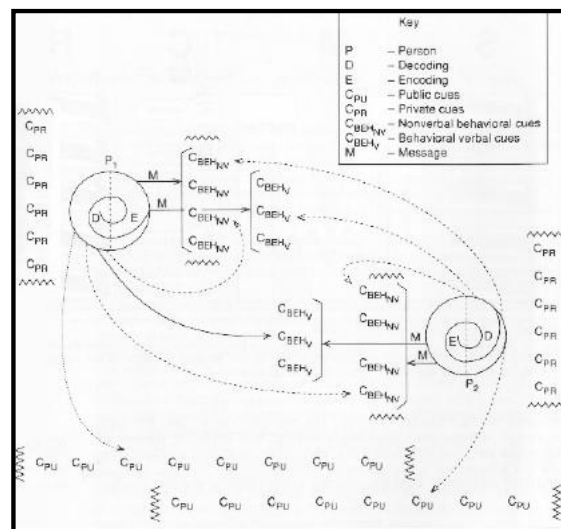 Key
P – Person
D – Decoding
E – Encoding
C_PU – Public cues
C_PR – Private cues
C_BEH_NV – Nonverbal behavioral cues
C_BEH_V – Behavioral verbal cues
M – Message
C_PR
C_PR
C_PR
C_PR
C_PR
P_1
D E
M
M
C_BEH_NV
C_BEH_NV
C_BEH_NV
C_BEH_NV
C_BEH_V
C_BEH_V
C_BEH_V
C_BEH_V
C_BEH_V
C_BEH_V
M
M
C_BEH_NV
C_BEH_NV
C_BEH_NV
C_BEH_NV
E D
P_2
C_PR
C_PR
C_PR
C_PR
C_PR
C_PR
C_PU C_PU C_PU C_PU C_PU C_PU C_PU C_PU
C_PU C_PU C_PU C_PU C_PU C_PU C_PU C_PU